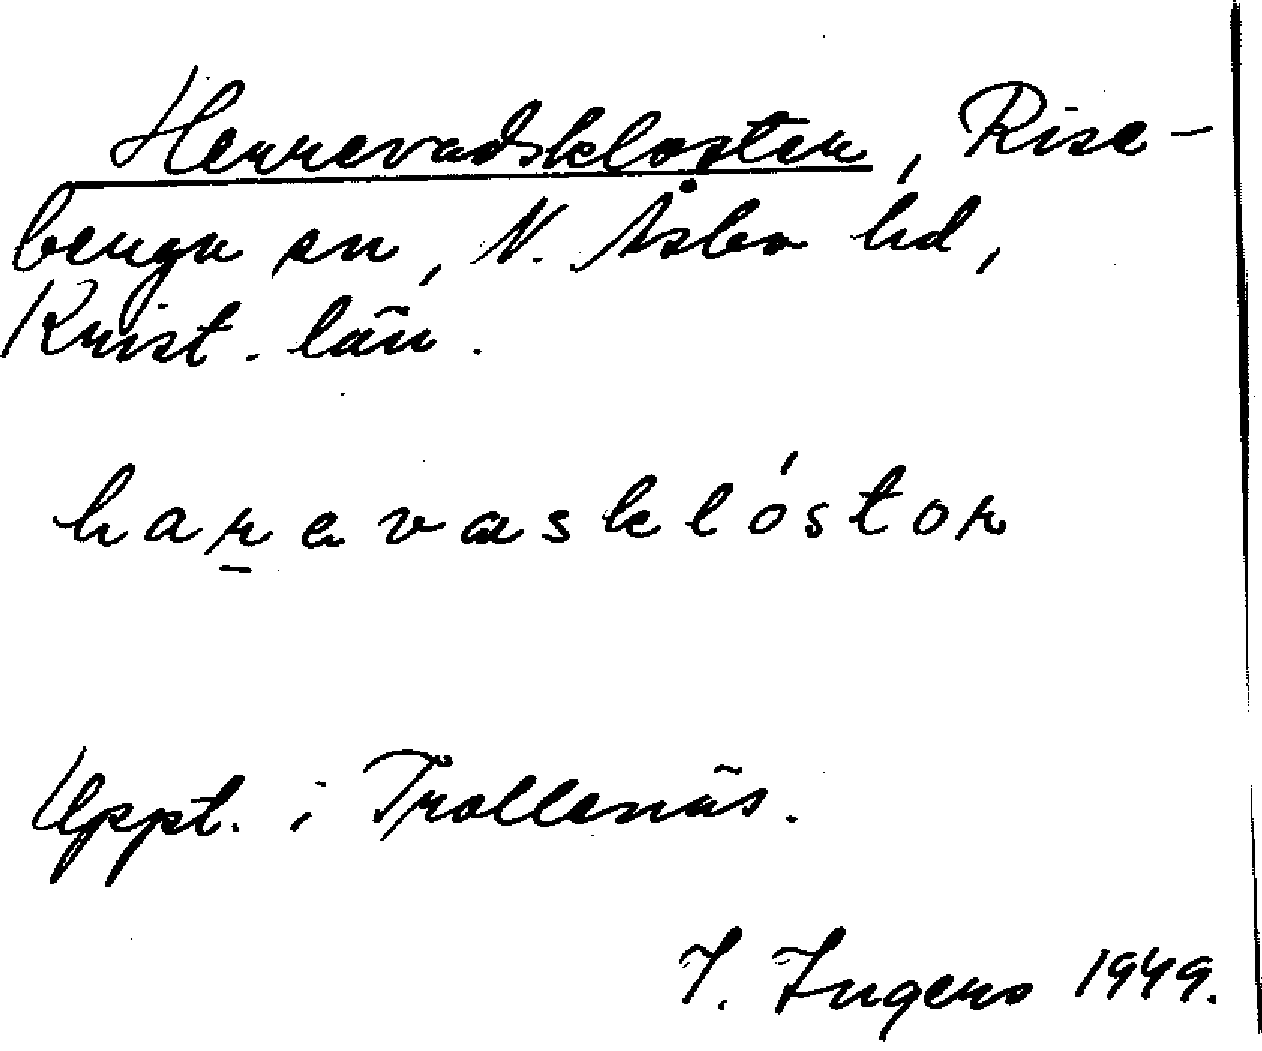 Herrevadskloster, Rise-
berga sn, N. Åsbo hd,
Krist. län.
harevasklóstor
Uppt. i Trollenäs.
I. Ingers 1949.